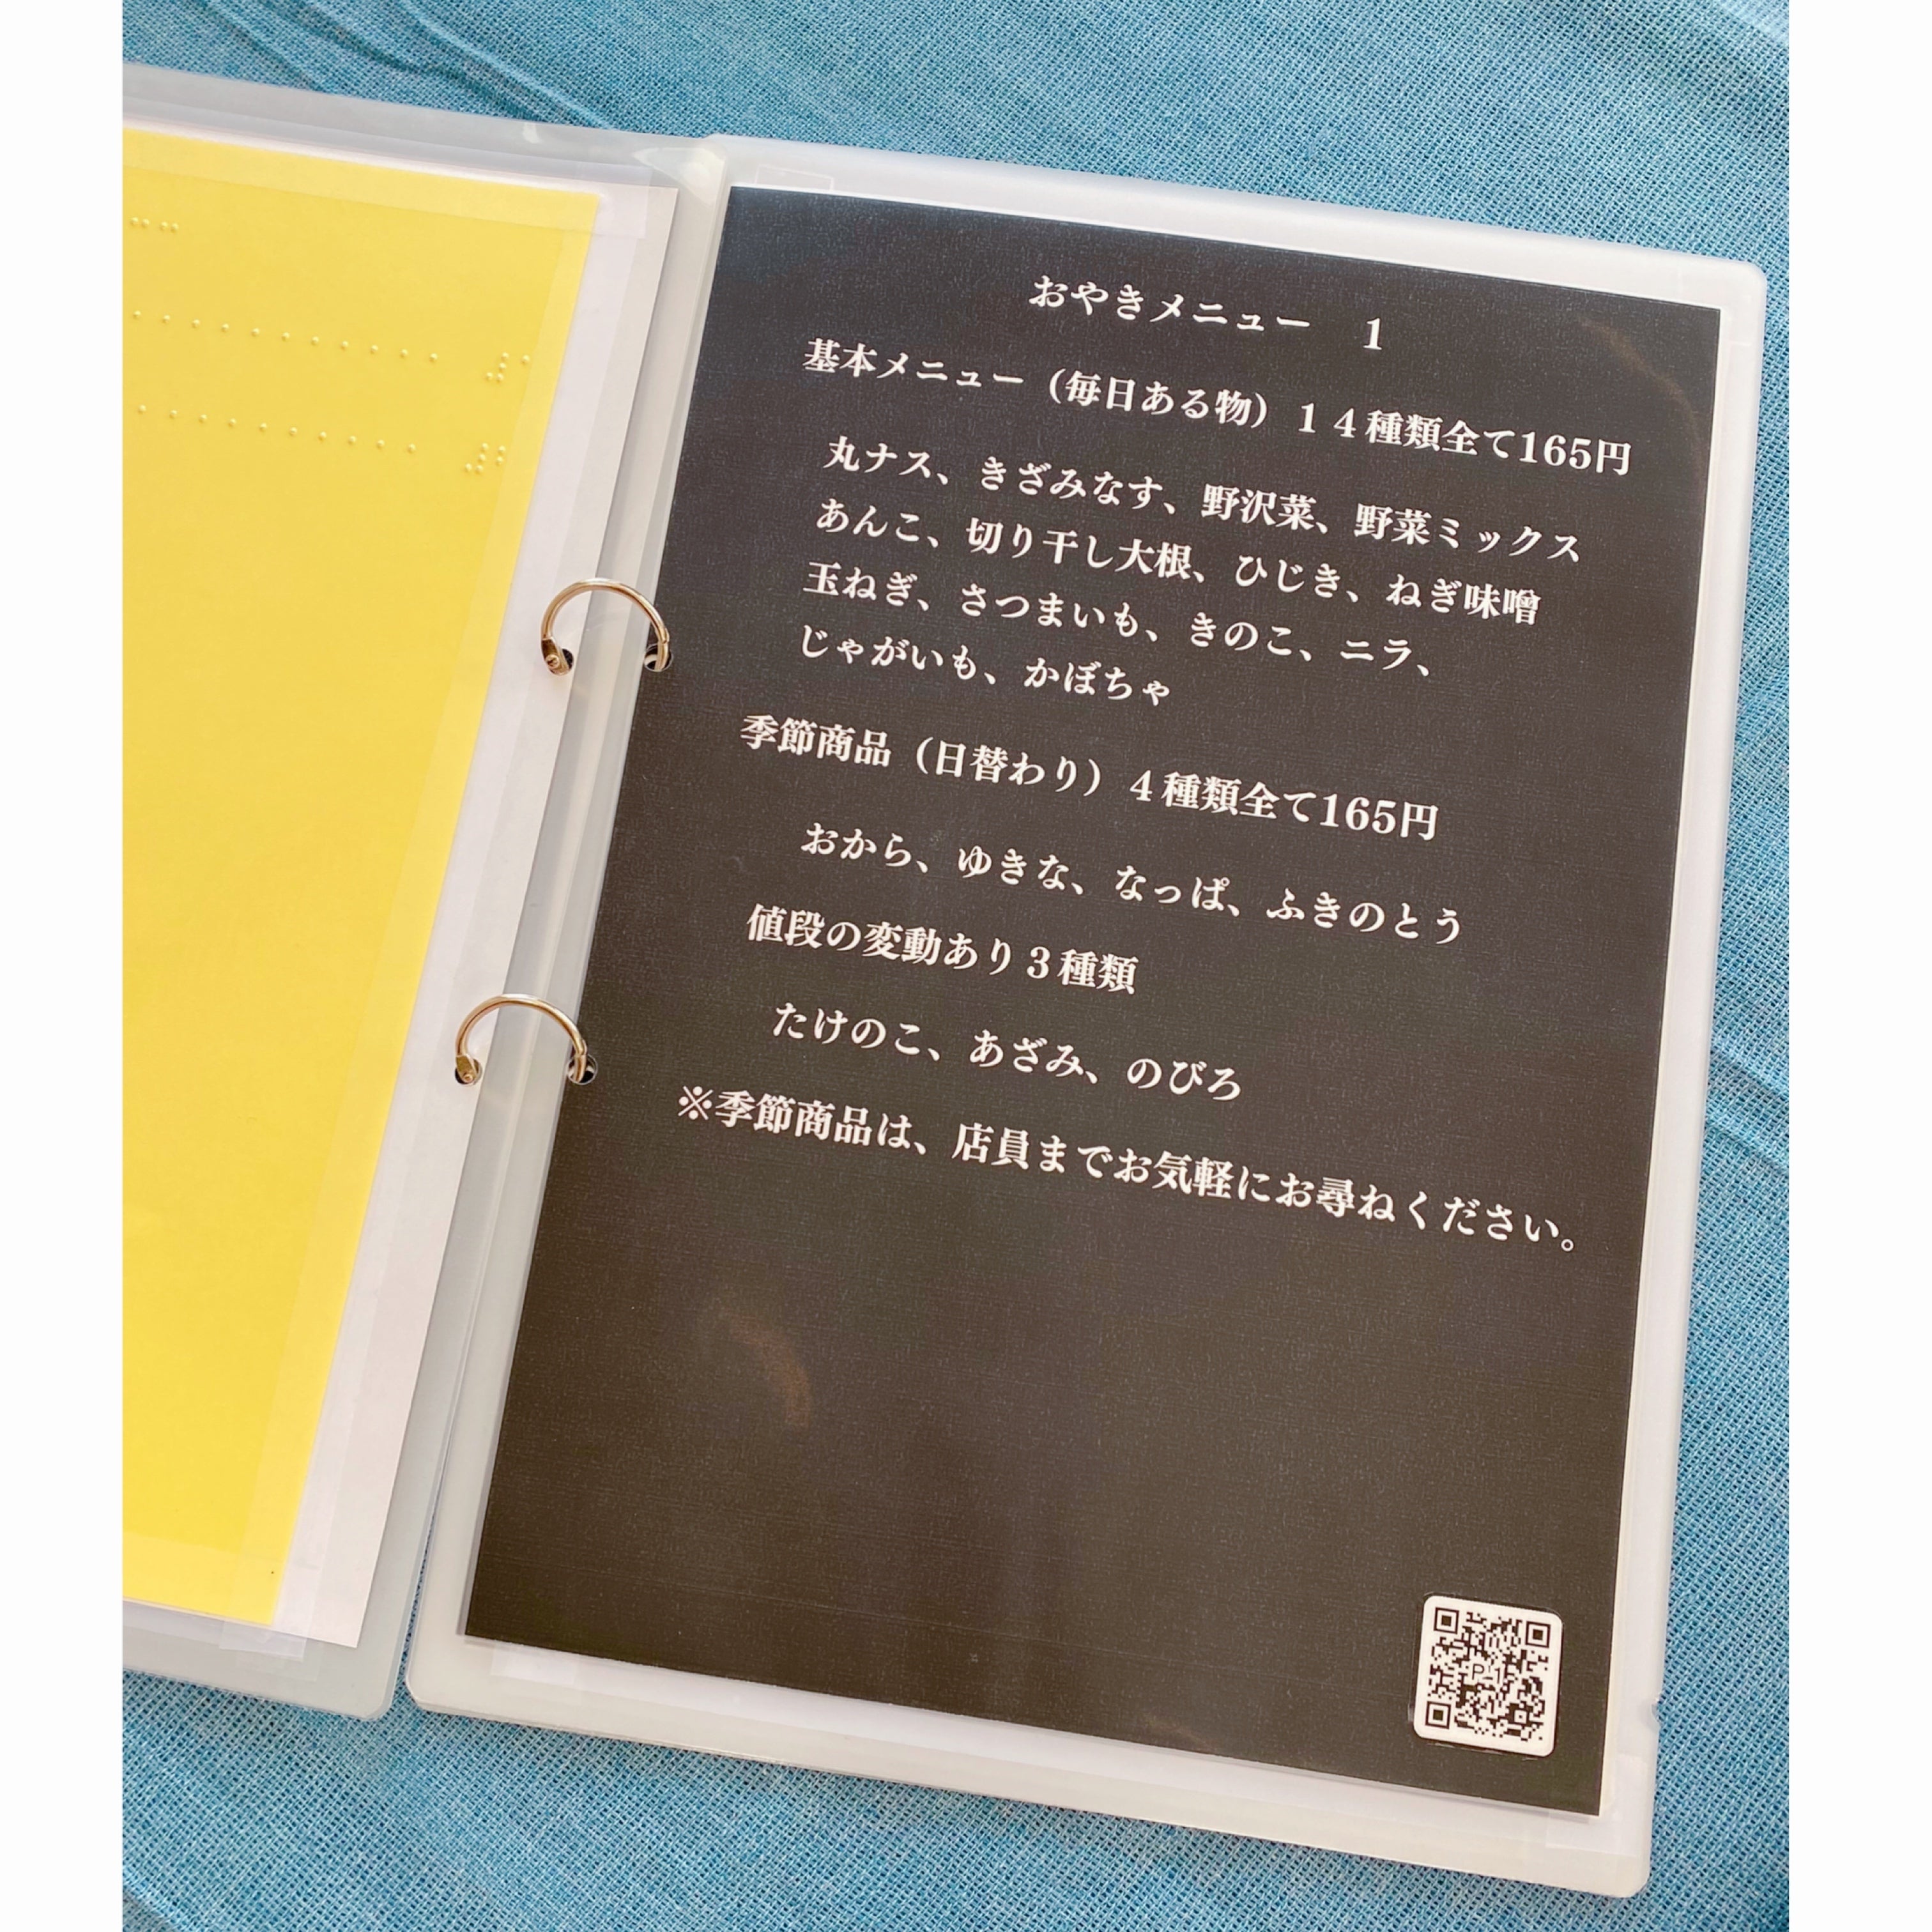 おやきメニュー　1
基本メニュー（毎日ある物）１４種類全て165円
丸ナス、きざみなす、野沢菜、野菜ミックス
あんこ、切り干し大根、ひじき、ねぎ味噌
玉ねぎ、さつまいも、きのこ、ニラ、
じゃがいも、かぼちゃ
季節商品（日替わり）４種類全て165円
おから、ゆきな、なっぱ、ふきのとう
値段の変動あり３種類
たけのこ、あざみ、のびろ
※季節商品は、店員までお気軽にお尋ねください。
P-1